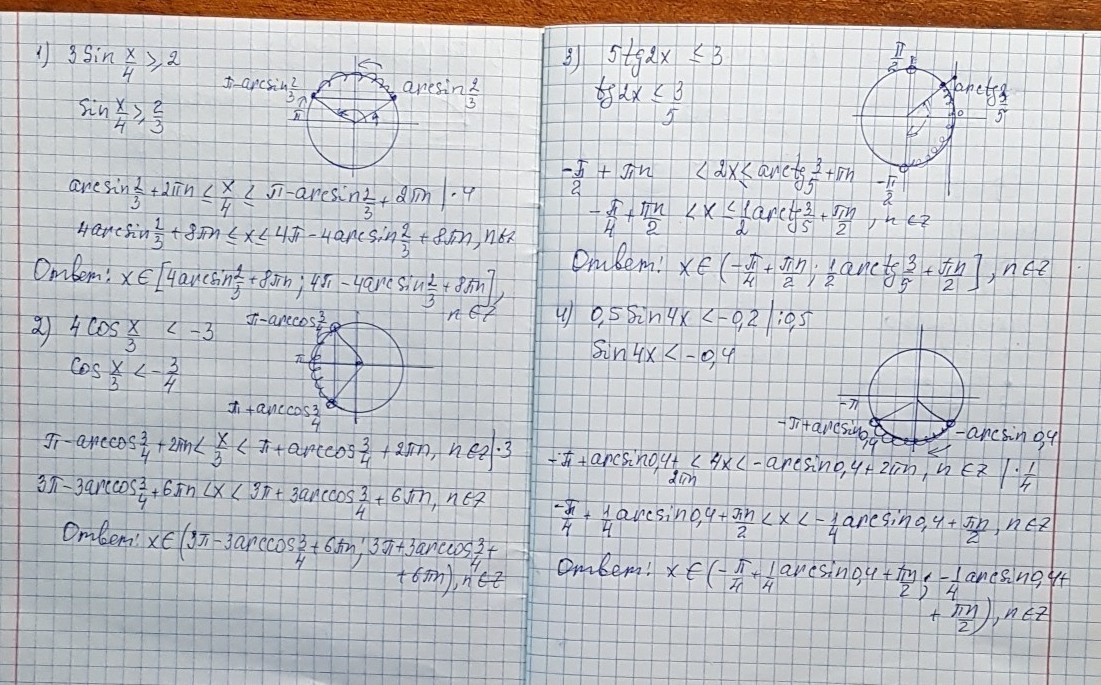 1) 3 Sin x/4 ≥ 2
π-arcsin 2/3
arcsin 2/3
π
Sin x/4 ≥ 2/3
arcsin 2/3 + 2πn ≤ x/4 ≤ π - arcsin 2/3 + 2πn | · 4
4arcsin 2/3 + 8πn ≤ x ≤ 4π - 4arcsin 2/3 + 8πn, n∈z
Ответ: x∈[4arcsin 2/3 + 8πn; 4π - 4arcsin 2/3 + 8πn],
n∈Z
2) 4 cos x/3 < -3
π-arccos 3/4
π
cos x/3 < -3/4
π+arccos 3/4
π - arccos 3/4 + 2πn < x/3 < π + arccos 3/4 + 2πn, n∈z | · 3
3π - 3arccos 3/4 + 6πn < x < 3π + 3arccos 3/4 + 6πn, n∈Z
Ответ: x∈(3π - 3arccos 3/4 + 6πn; 3π + 3arccos 3/4 +
+ 6πn), n∈Z
3) 5 tg2x ≤ 3
π/2
arctg 3/5
tg2x ≤ 3/5
-π/2
-π/2 + πn < 2x ≤ arctg 3/5 + πn
-π/4 + πn/2 < x ≤ 1/2 arctg 3/5 + πn/2, n∈Z
Ответ: x∈(-π/4 + πn/2; 1/2 arctg 3/5 + πn/2], n∈Z
4) 0,5 Sin4x < -0,2 | :0,5
Sin4x < -0,4
-π
-π+arcsin0,4
-arcsin 0,4
-π + arcsin0,4 + 2πn < 4x < -arcsin0,4 + 2πn, n∈Z | · 1/4
-π/4 + 1/4 arcsin0,4 + πn/2 < x < -1/4 arcsin0,4 + πn/2, n∈Z
Ответ: x∈(-π/4 + 1/4 arcsin0,4 + πn/2; -1/4 arcsin0,4 +
+ πn/2), n∈Z